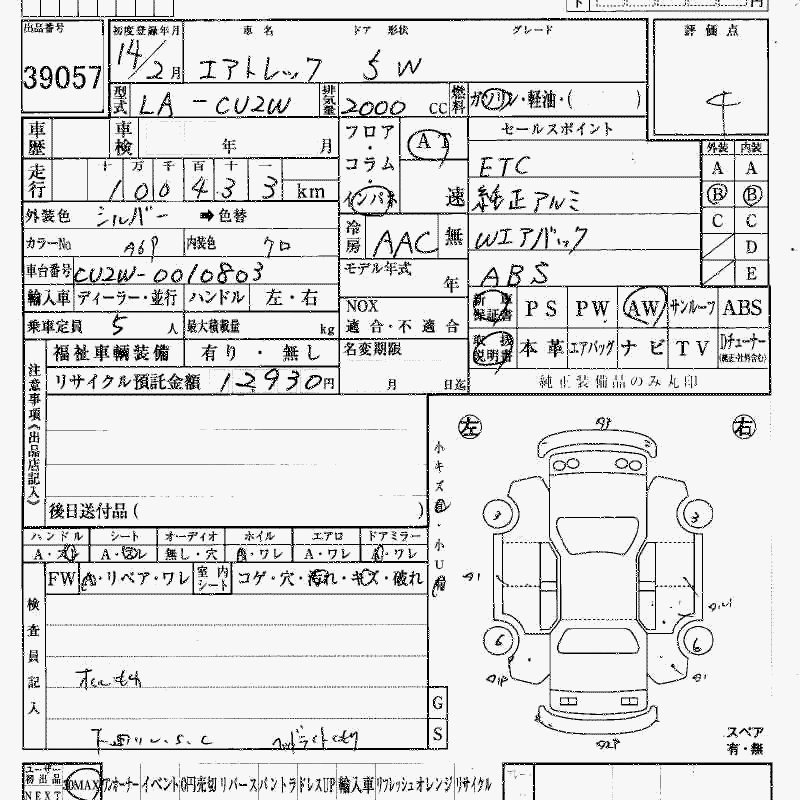 円
出品番号
39057
初度登録年月 車名 ドア 形状 グレード
14/2月 エアトレック 5 W
型式 LA-CU2W 排気量 2000 CC 燃料 ガソリン・軽油・( )
評価点
4
車歴 車検 年 月
フロア・コラム・インパネ AT 速
セールスポイント
ETC
純正アルミ
Wエアバック
ABS
外装 内装
A A
B B
C C
D
E
走行 十 万 千 百 十 一
100433 km
外装色 シルバー ➡色替
冷房 AAC 無
カラーNo A69 内装色 クロ
車台番号 CU2W-0010803
モデル年式 年
輸入車 ディーラー・並行 ハンドル 左・右
NOX 適合・不適合
乗車定員 5 人 最大積載量 kg
新車保証書 PS PW AW サンルーフ ABS
取扱説明書 本革 エアバッグ ナビ TV Dチューナー(純正・社外含む)
純正装備品のみ丸印
福祉車輌装備 有り・無し
名変期限 月 日迄
リサイクル預託金額 12,930円
注意事項《出品店記入》
後日送付品( )
左 右
小キズ ・小U
3 3
A1
6 6
A1
ハンドル シート オーディオ ホイル エアロ ドアミラー
A・スレ A・コゲ・スレ 無し・穴 A・ワレ A・ワレ A・ワレ
FW A・リペア・ワレ 室内シート コゲ・穴・汚れ・キズ・破れ
検査員記入
G
S
スペア
有・無
ユーザー初出品 NEXT 30MAX ワンオーナー イベント 0円売切 リバース パントラ ドレスUP 輸入車 リフレッシュ オレンジ リサイクル